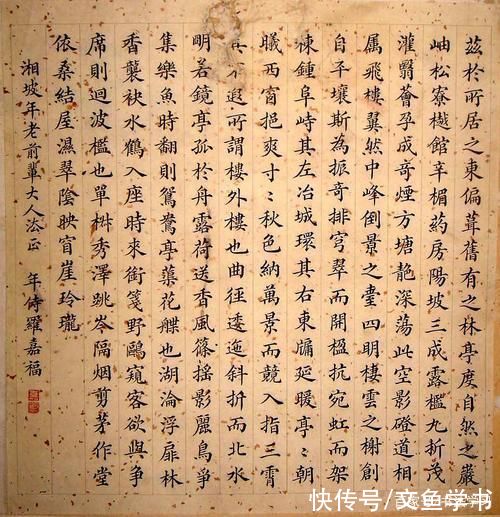 茲於所居之東偏葺舊有之林亭度自然之巖
岫松寮樾館辛楣葯房陽坡三成露檻九折茂
灌翳薈孕成奇煙方塘靚深蕩此空影磴道相
属飛樓翼然中峰倒景之臺四明棲雲之榭創
自平壤斯為振奇排穹翠而開楹抗宛虹而架
棟鍾阜峙其左冶城環其右東牖延暖亭亭朝
曦西窗挹爽寸寸秋色納萬景而競入指三霄
其不遐所謂樓外樓也曲徑逶迤斜折而北水
明若鏡亭孤於舟露荷送香風篠搖影麗鳥爭
集樂魚時翻則鴛鴦亭藻花艓也湖淪浮扉林
香襲袂水鶴入座時來銜箋野鷗窺客欲與爭
席則迴波檻也單椒秀澤跳岑隔烟剪茅作堂
依桑結屋濕翠陰映窅崖玲瓏
湘坡年老前輩大人法正 年侍羅嘉福
快传号/文鱼学书